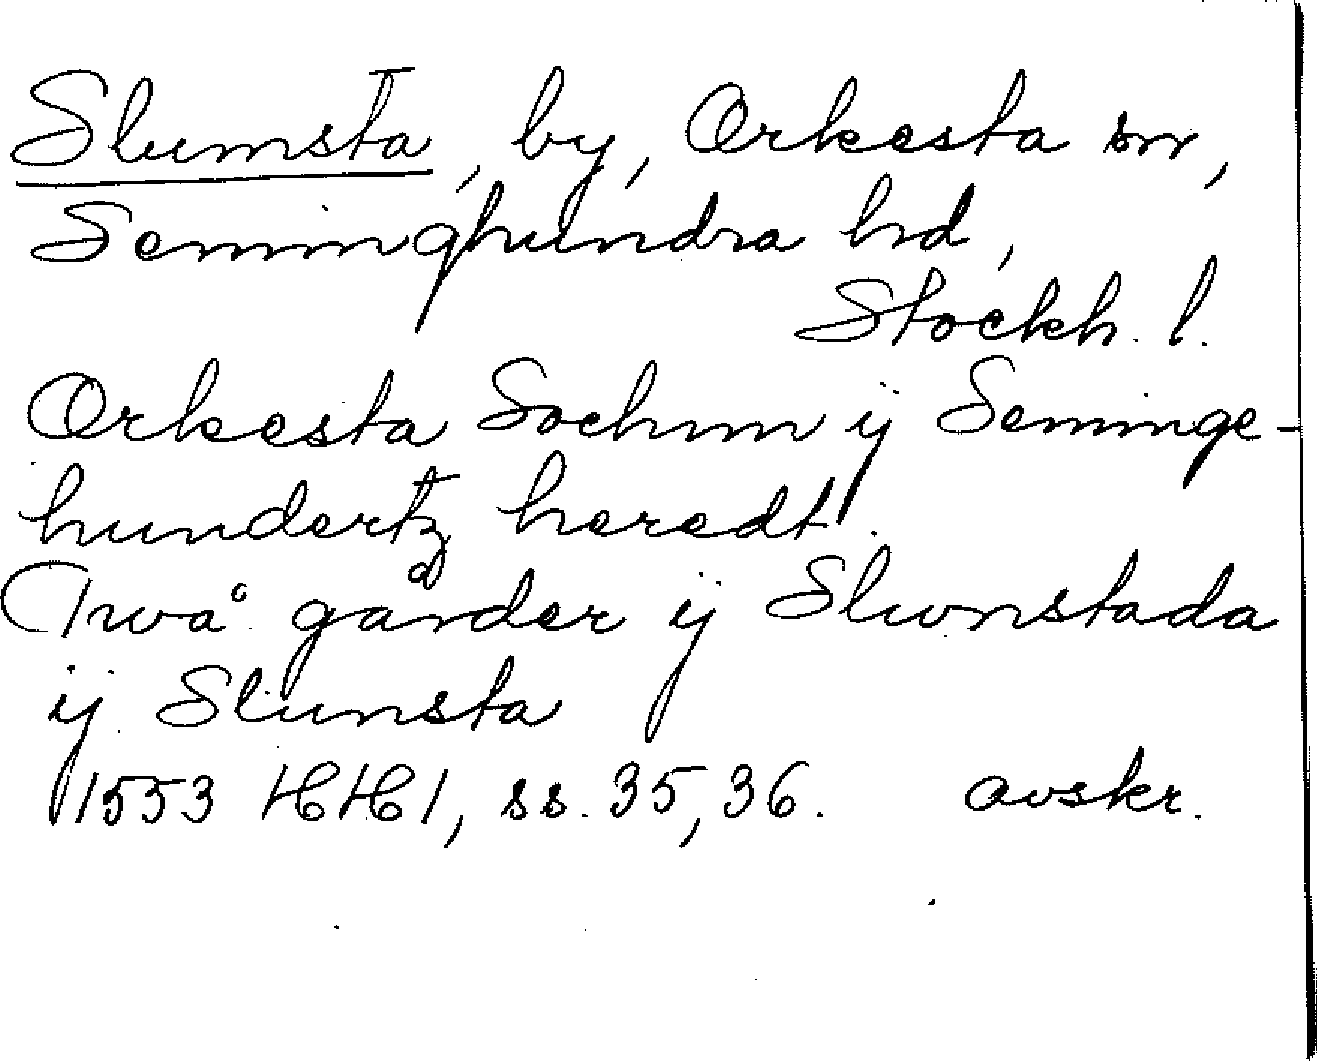 Slumsta, by, Orkesta sn,
Seminghundra hd,
Stockh. l.
Orkesta Sochnn ij Seminge-
hundertz heredt.
Twå gårder ij Slwnstada
ij Slunsta
1553 HH1, ss. 35, 36. avskr.